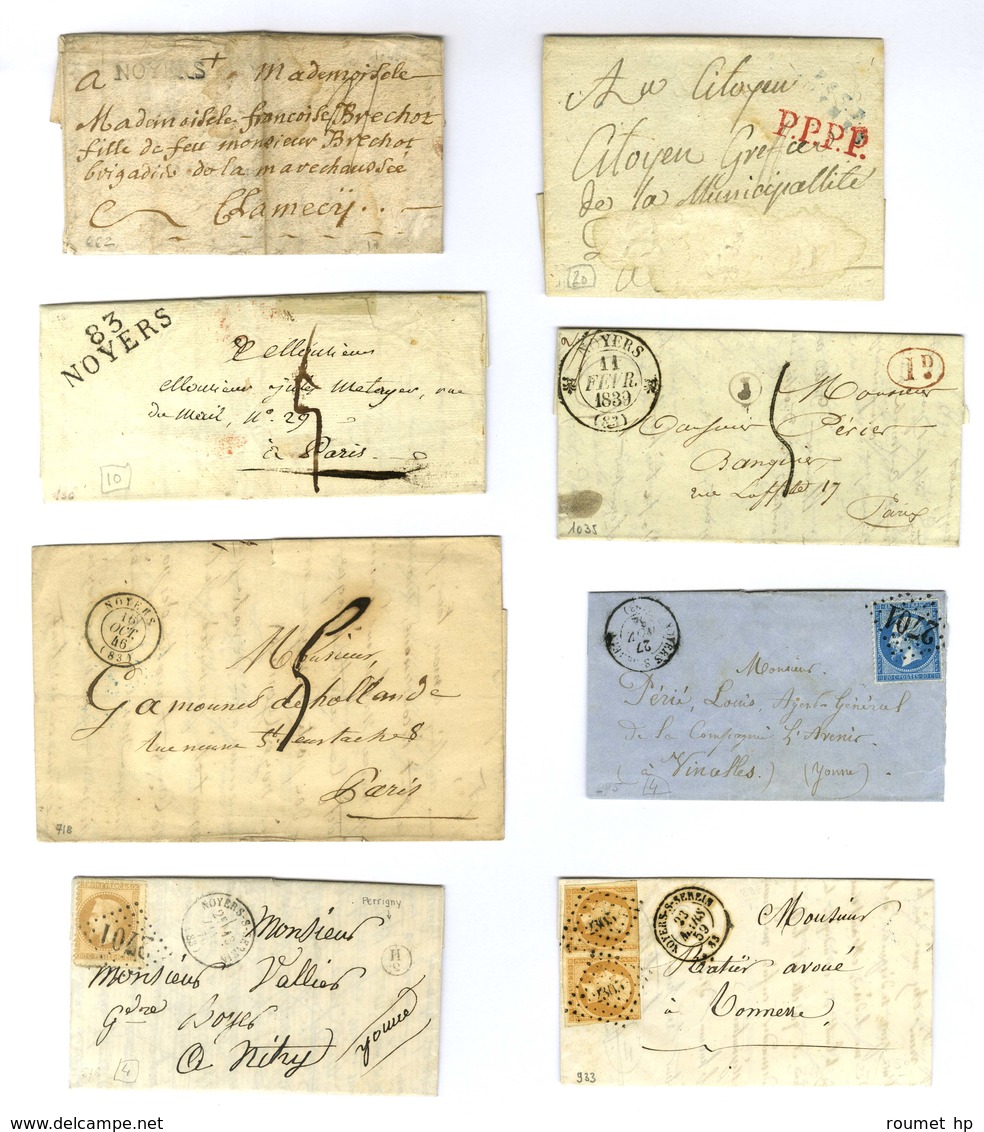 a NOYERS Mademoisele
Mademoisele francoise Brechot
fille de feu monsieur Brechot
brigadie de la marechaussée
Clamecÿ
Au Citoyen
P.P.P.P.
Citoyen Grefier
de la Municipallité
20
83
NOYERS
Monsieur
Monsieur Metayer, rue
du Mail, No. 29
à Paris
10
NOYERS
11
FEVR.
1839
(83)
1 D
Monsieur
Monsieur Périer
Banquier
rue Laffitte 17
Paris
1035
NOYERS
16
OCT.
46
(83)
Monsieur,
Gamounes de hollande
Rue neuve St. eustache 8
Paris
718
27
2701
20 C POSTES 20 C
Monsieur
Périé, Louis, Agent-Général
de la Compagnie L'Avenir
à Vincelles. (Yonne)
4
2701
NOYERS-S-SEREIN
Perrigny
H
Monsieur
Monsieur Vallier
Noyer
A Nitry
Yonne
4
NOYERS-S-SEREIN
23
MARS
59
Monsieur
Ratier avoué
à Tonnerre
933
roumet hp